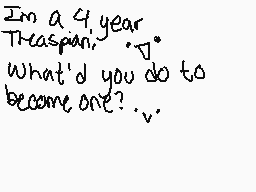 Im a 4 year
Theaspian,
What'd you do to
become one?